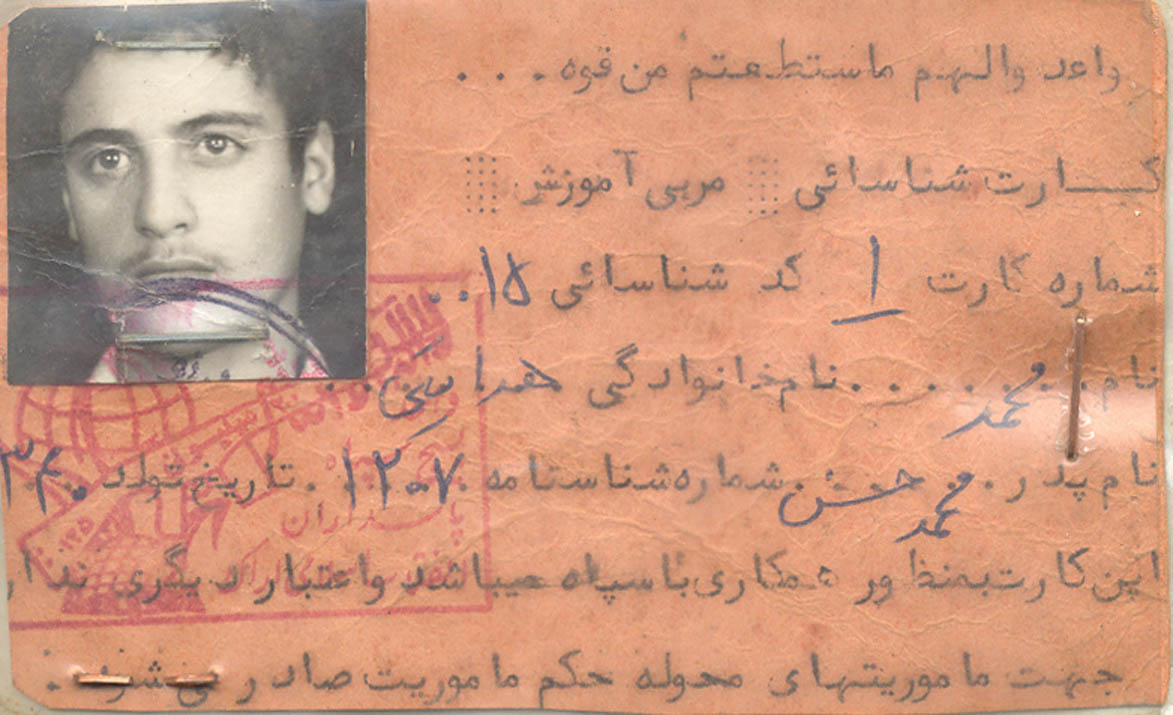 واعد والهم ماستطعتم من قوه ...
کارت شناسائی مربی آموزش
شماره کارت ۱ کد شناسائی ۱۵..
نام محمد نام خانوادگی
نام پدر محمد حسن شماره شناسنامه ۱۲۰۷ تاریخ تولد ۳۴
این کارت بمنظور همکاری با سپاه میباشد و اعتبار دیگری ندار
جهت ماموریتهای محوله حکم ماموریت صادر می شود .
پاسداران
اراک